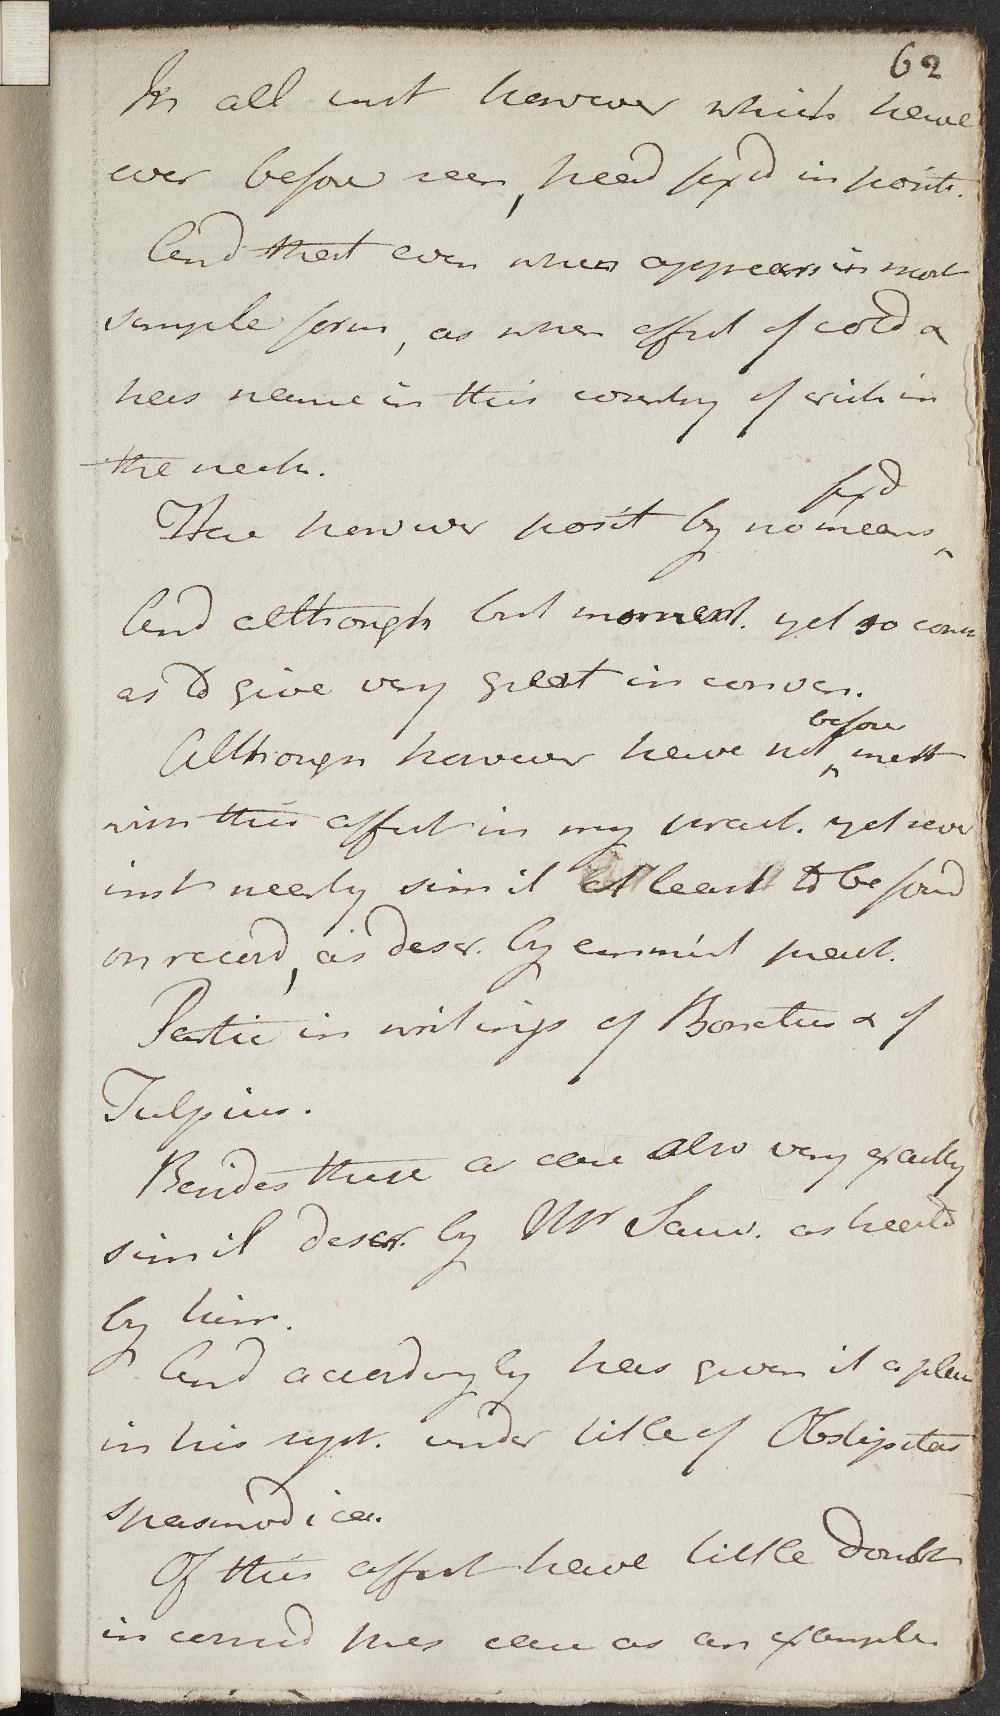 62
In all inst however which have
ever before seen, head fix'd in posit.
And that even when appears in most
simple form, as when effect of cold &
has name in this country of crick in
the neck.
Here however posit by no means fix'd
And although but moment. yet so comm
as to give very great inconven.
Although however have not before mett
with this affect in my pract. yet sever
inst nearly simil at least to be foud
on record, as descr. by eminent pract.
Partic in writings of Bonetus & of
Tulpius.
Besides these a case also very exactly
simil descr. by Mr Sauv. as treatd
by him.
And accordingly has given it a place
in his syst. under title of Obstipitas
spasmodica.
Of this affect have little doubt
in consid pres case as an example